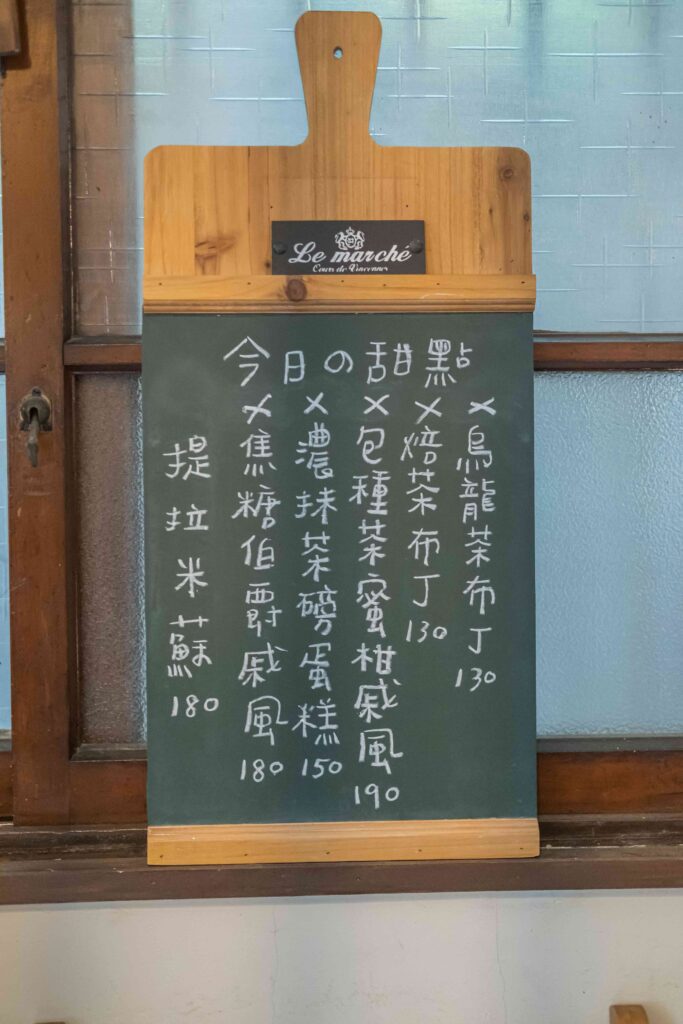 Le marché
Cours de Vincennes
今日の甜點
×烏龍茶布丁130
×焙茶布丁130
×包種茶蜜柑戚風190
×濃抹茶磅蛋糕150
×焦糖伯爵戚風180
提拉米蘇180